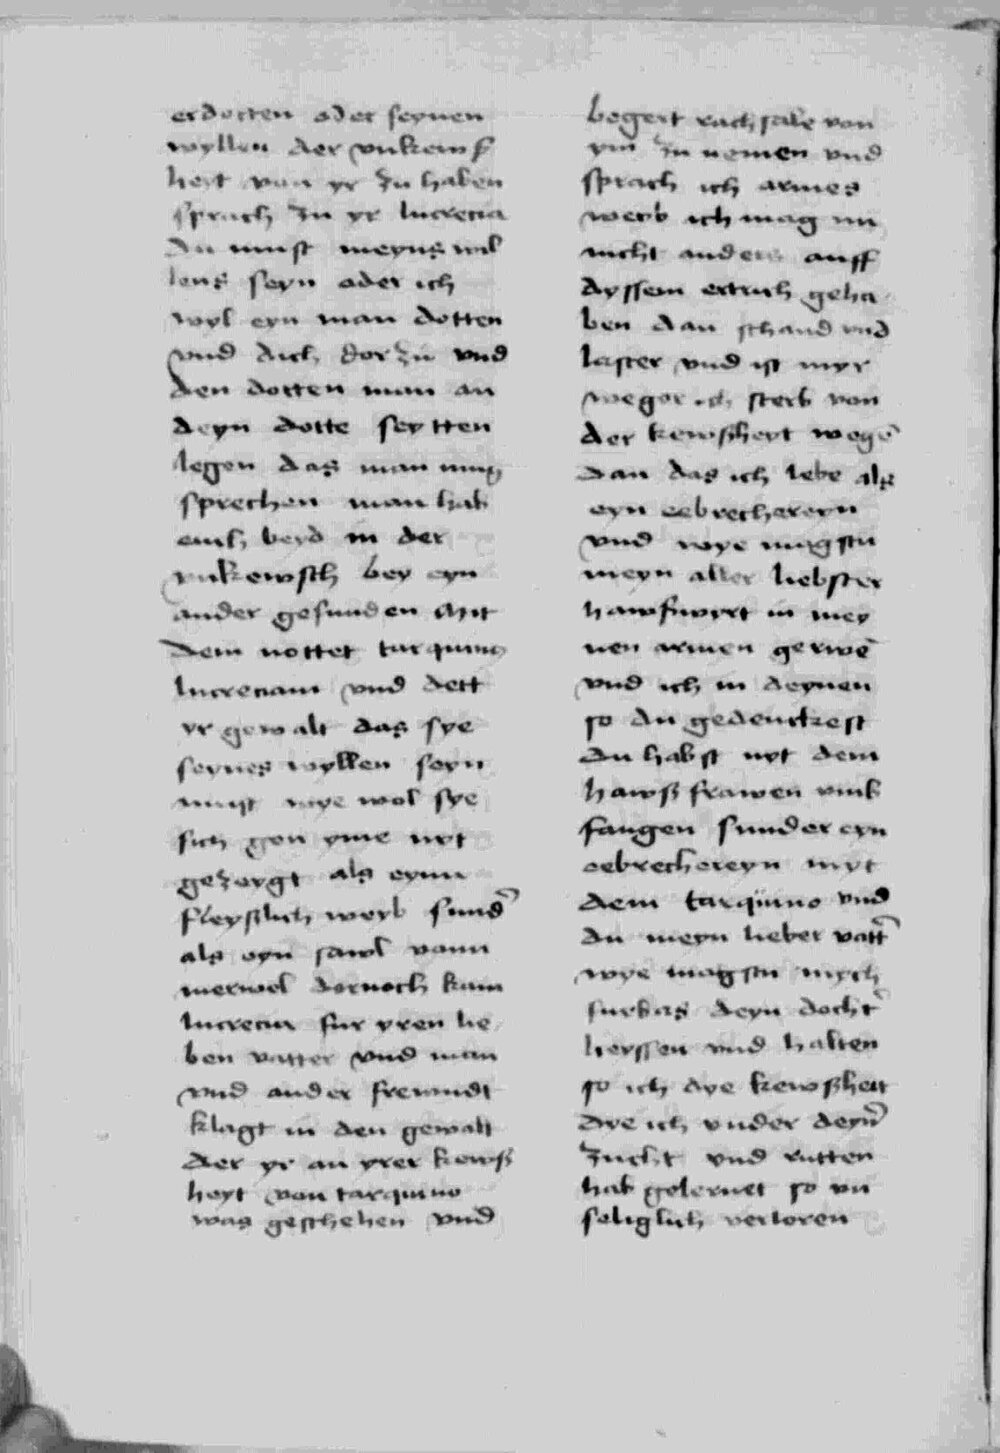 erdotten oder seynen
wyllen der vnkewß
heyt von yr zu haben
sprach zu yr lucrecia
du must meyns wil
lens seyn oder ich
wyl eyn man dotten
vnd dich dorzu vnd
den dotten man an
deyn dotte seytten
legen das man mug
sprechen man hab
euch beyd in der
vnkewsch bey eyn
ander gefunden Mit
dem nottet tarquinus
lucreciam vnd dett
yr gewalt das sye
seynes wyllen seyn
must wye wol sye
sich gen yme nyt
gezeygt als eynn
fleyßlich weyb sundˀ
als eyn sawl vonn
merwel dornoch kam
lucrecia fur yren lie
ben vatter vnd man
vnd ander frewndt
klagt in den gewalt
der yr an yrer kewß
heyt von tarquino
was geschehen vnd
begert rachsale von
ym zu nemen vnd
sprach ich armes
weyb ich mag nu
nicht anders auff
dyssem ertrich geha
ben dan schand vnd
laster vnd ist myr
weger ich sterb von
der kewßheyt wegē
dan das ich lebe als
eyn eebrechereyn
vnd wye magstu
meyn aller liebster
hawßwyrt in mey
nen armen gerwē
vnd ich in deynen
so du gedenckest
du habst nyt dem
hawß frawen vmb
fangen sunder eyn
eebrechereyn myt
dem tarquino vnd
du meyn lieber vattˀ
wye magstu mych
furbas deyn dochtˀ
heyssen vnd halten
so ich dye kewßheit
dye ich vnder deynˀ
zucht vnd rutten
hab gelernet so vn
seliglich verloren